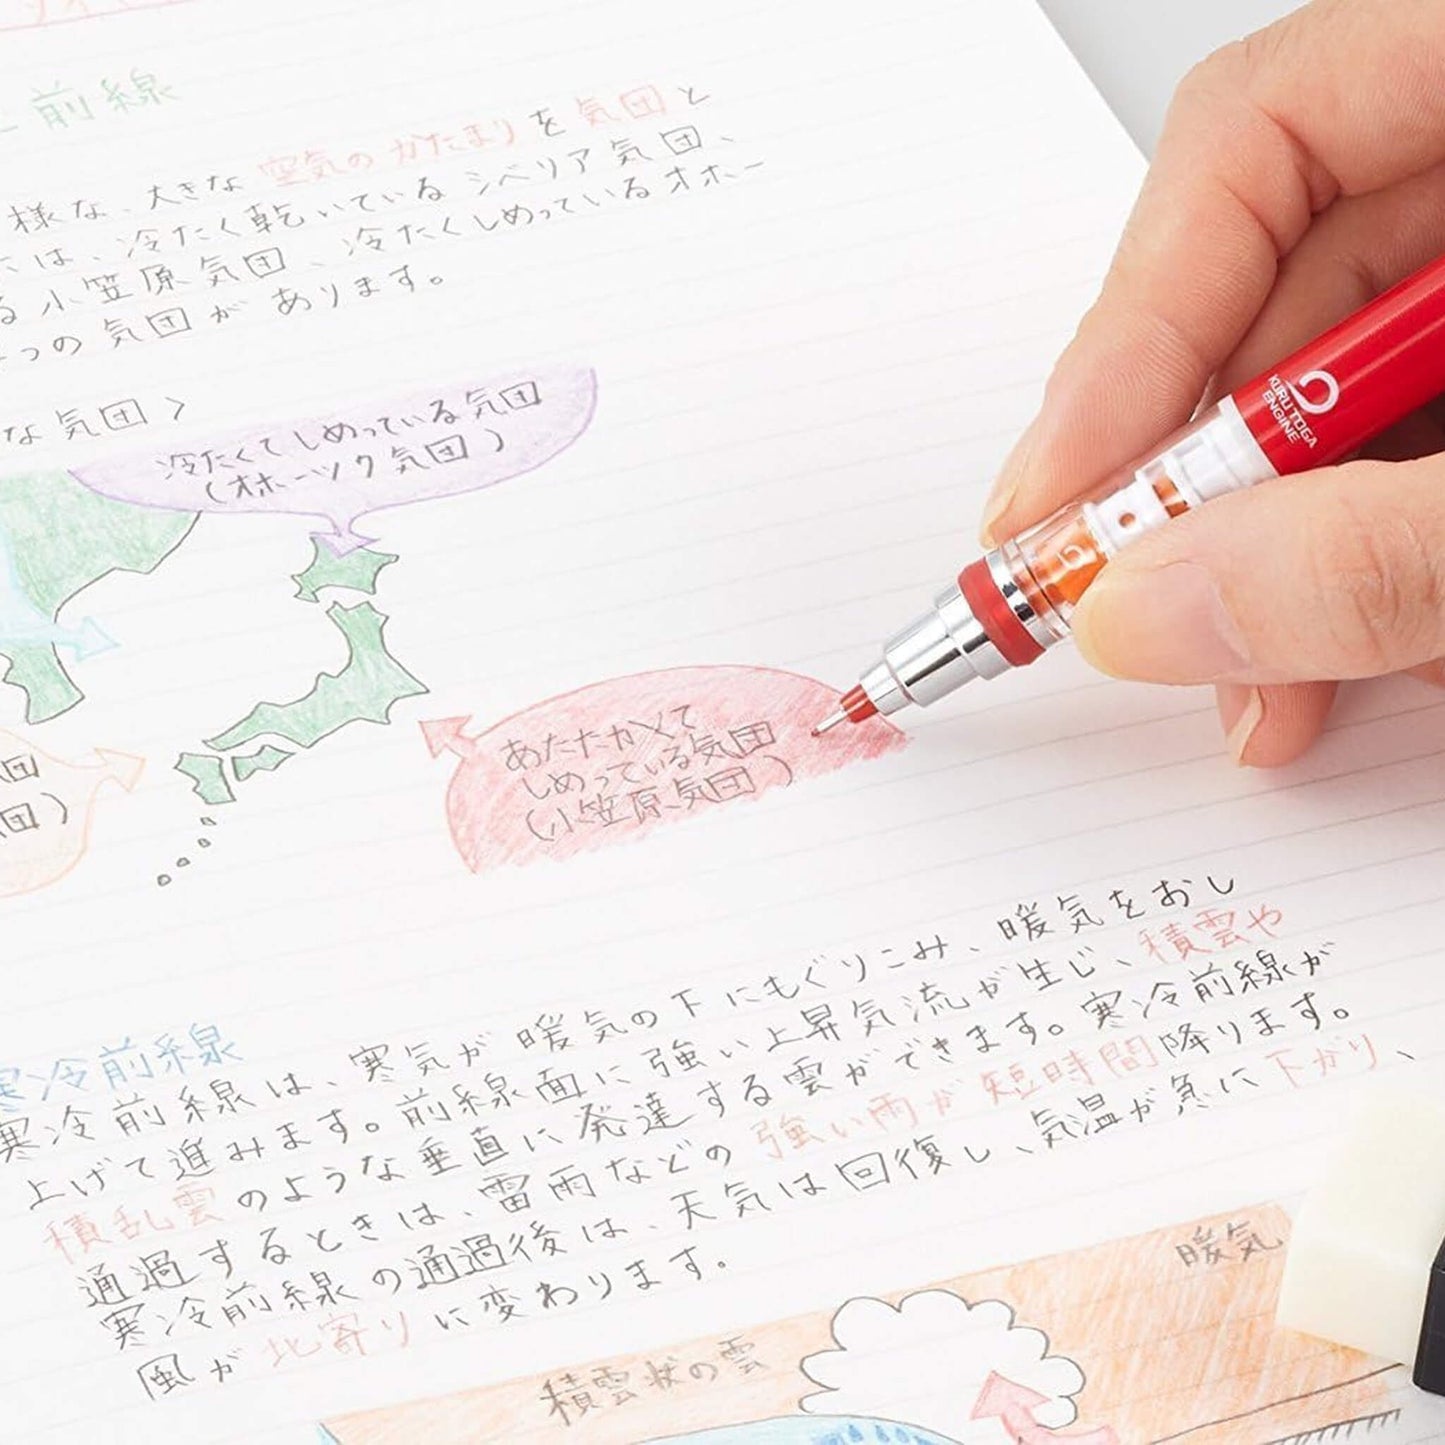 前線
様な、大きな 空気のかたまりを気団と
は、冷たく乾いているシベリア気団、
る小笠原気団、冷たくしめっているオホー
つの気団があります。
な気団〉
冷たくてしめっている気団
(オホーツク気団)
あたたかくて
しめっている気団
(小笠原気団)
団
団)
KURU TOGA
ENGINE
寒冷前線
寒冷前線は、寒気が暖気の下にもぐりこみ、暖気をおし
上げて進みます。前線面に強い上昇気流が生じ、積雲や
積乱雲のような垂直に発達する雲ができます。寒冷前線が
通過するときは、雷雨などの強い雨が短時間降ります。
寒冷前線の通過後は、天気は回復し、気温が急に下がり、
風が北寄りに変わります。
暖気
積雲状の雲